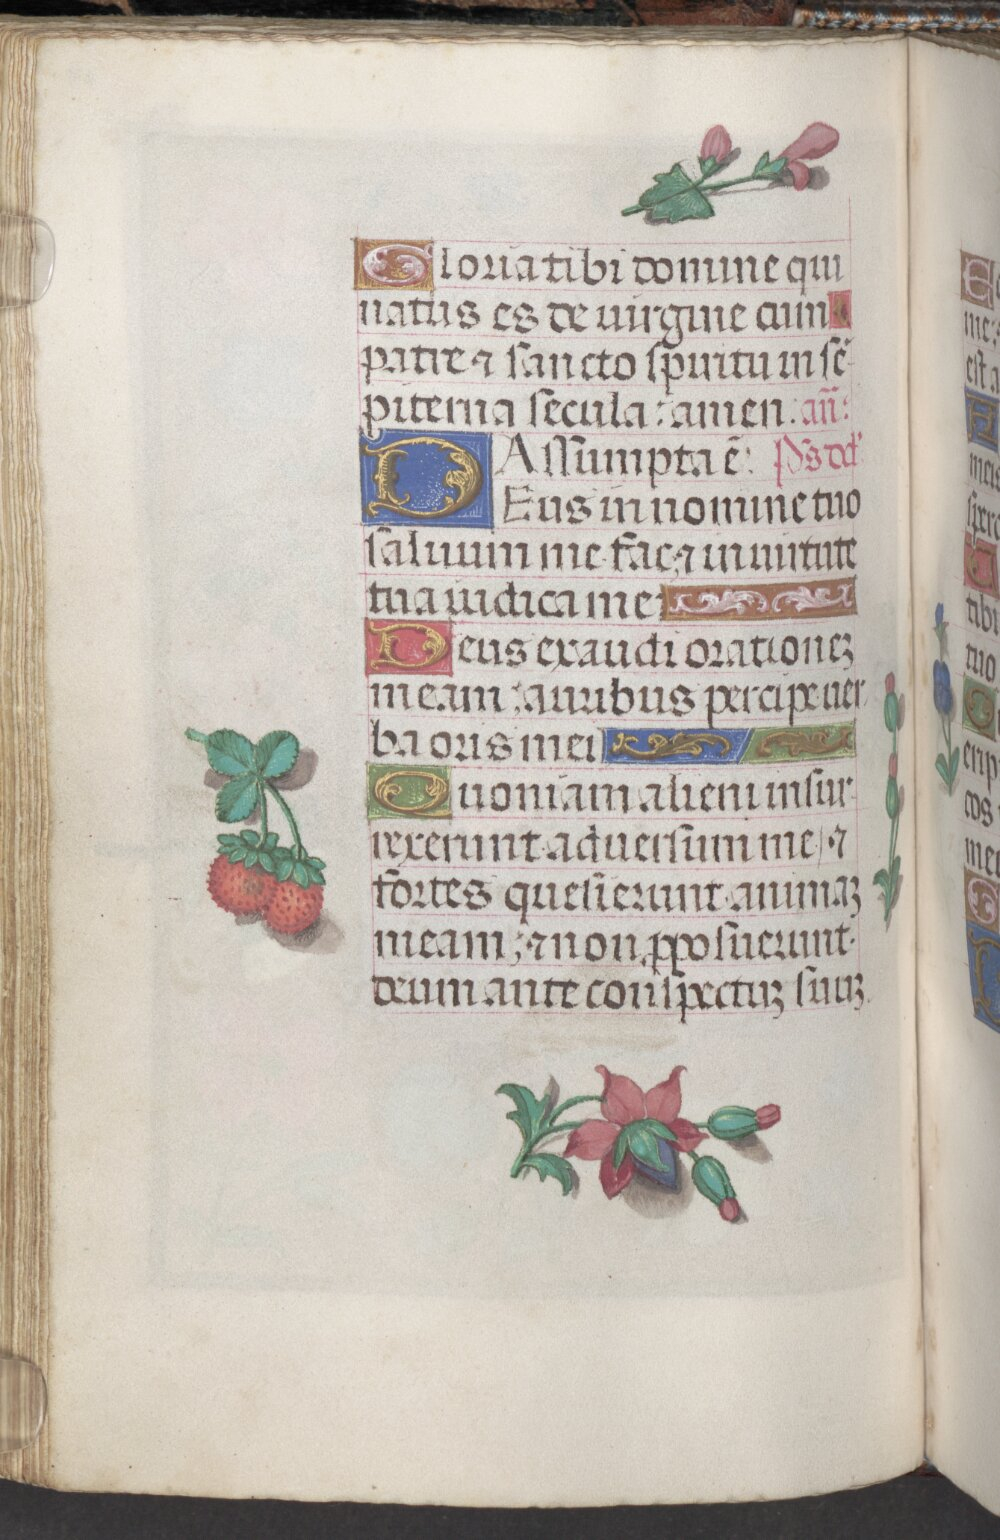 Gloria tibi domine qui
natus es de uirgine cum
patre ⁊ sancto spiritu in sē-
piterna secula : amen. añ:
Assumpta ē: Ps dd'
DEus in nomine tuo
saluum me fac, ⁊ in uirtute
tua iudica me:
Deus exaudi orationeꝫ
meam : auribus percipe uer-
ba oris mei
Quoniam alieni insur-
rexerunt aduersum me, ⁊
fortes quesierunt animaꝫ
meam; ⁊ non ꝓposuerunt
deum ante conspectuꝫ suuꝫ.
me;
est a
meis
tibi
tuo
cos